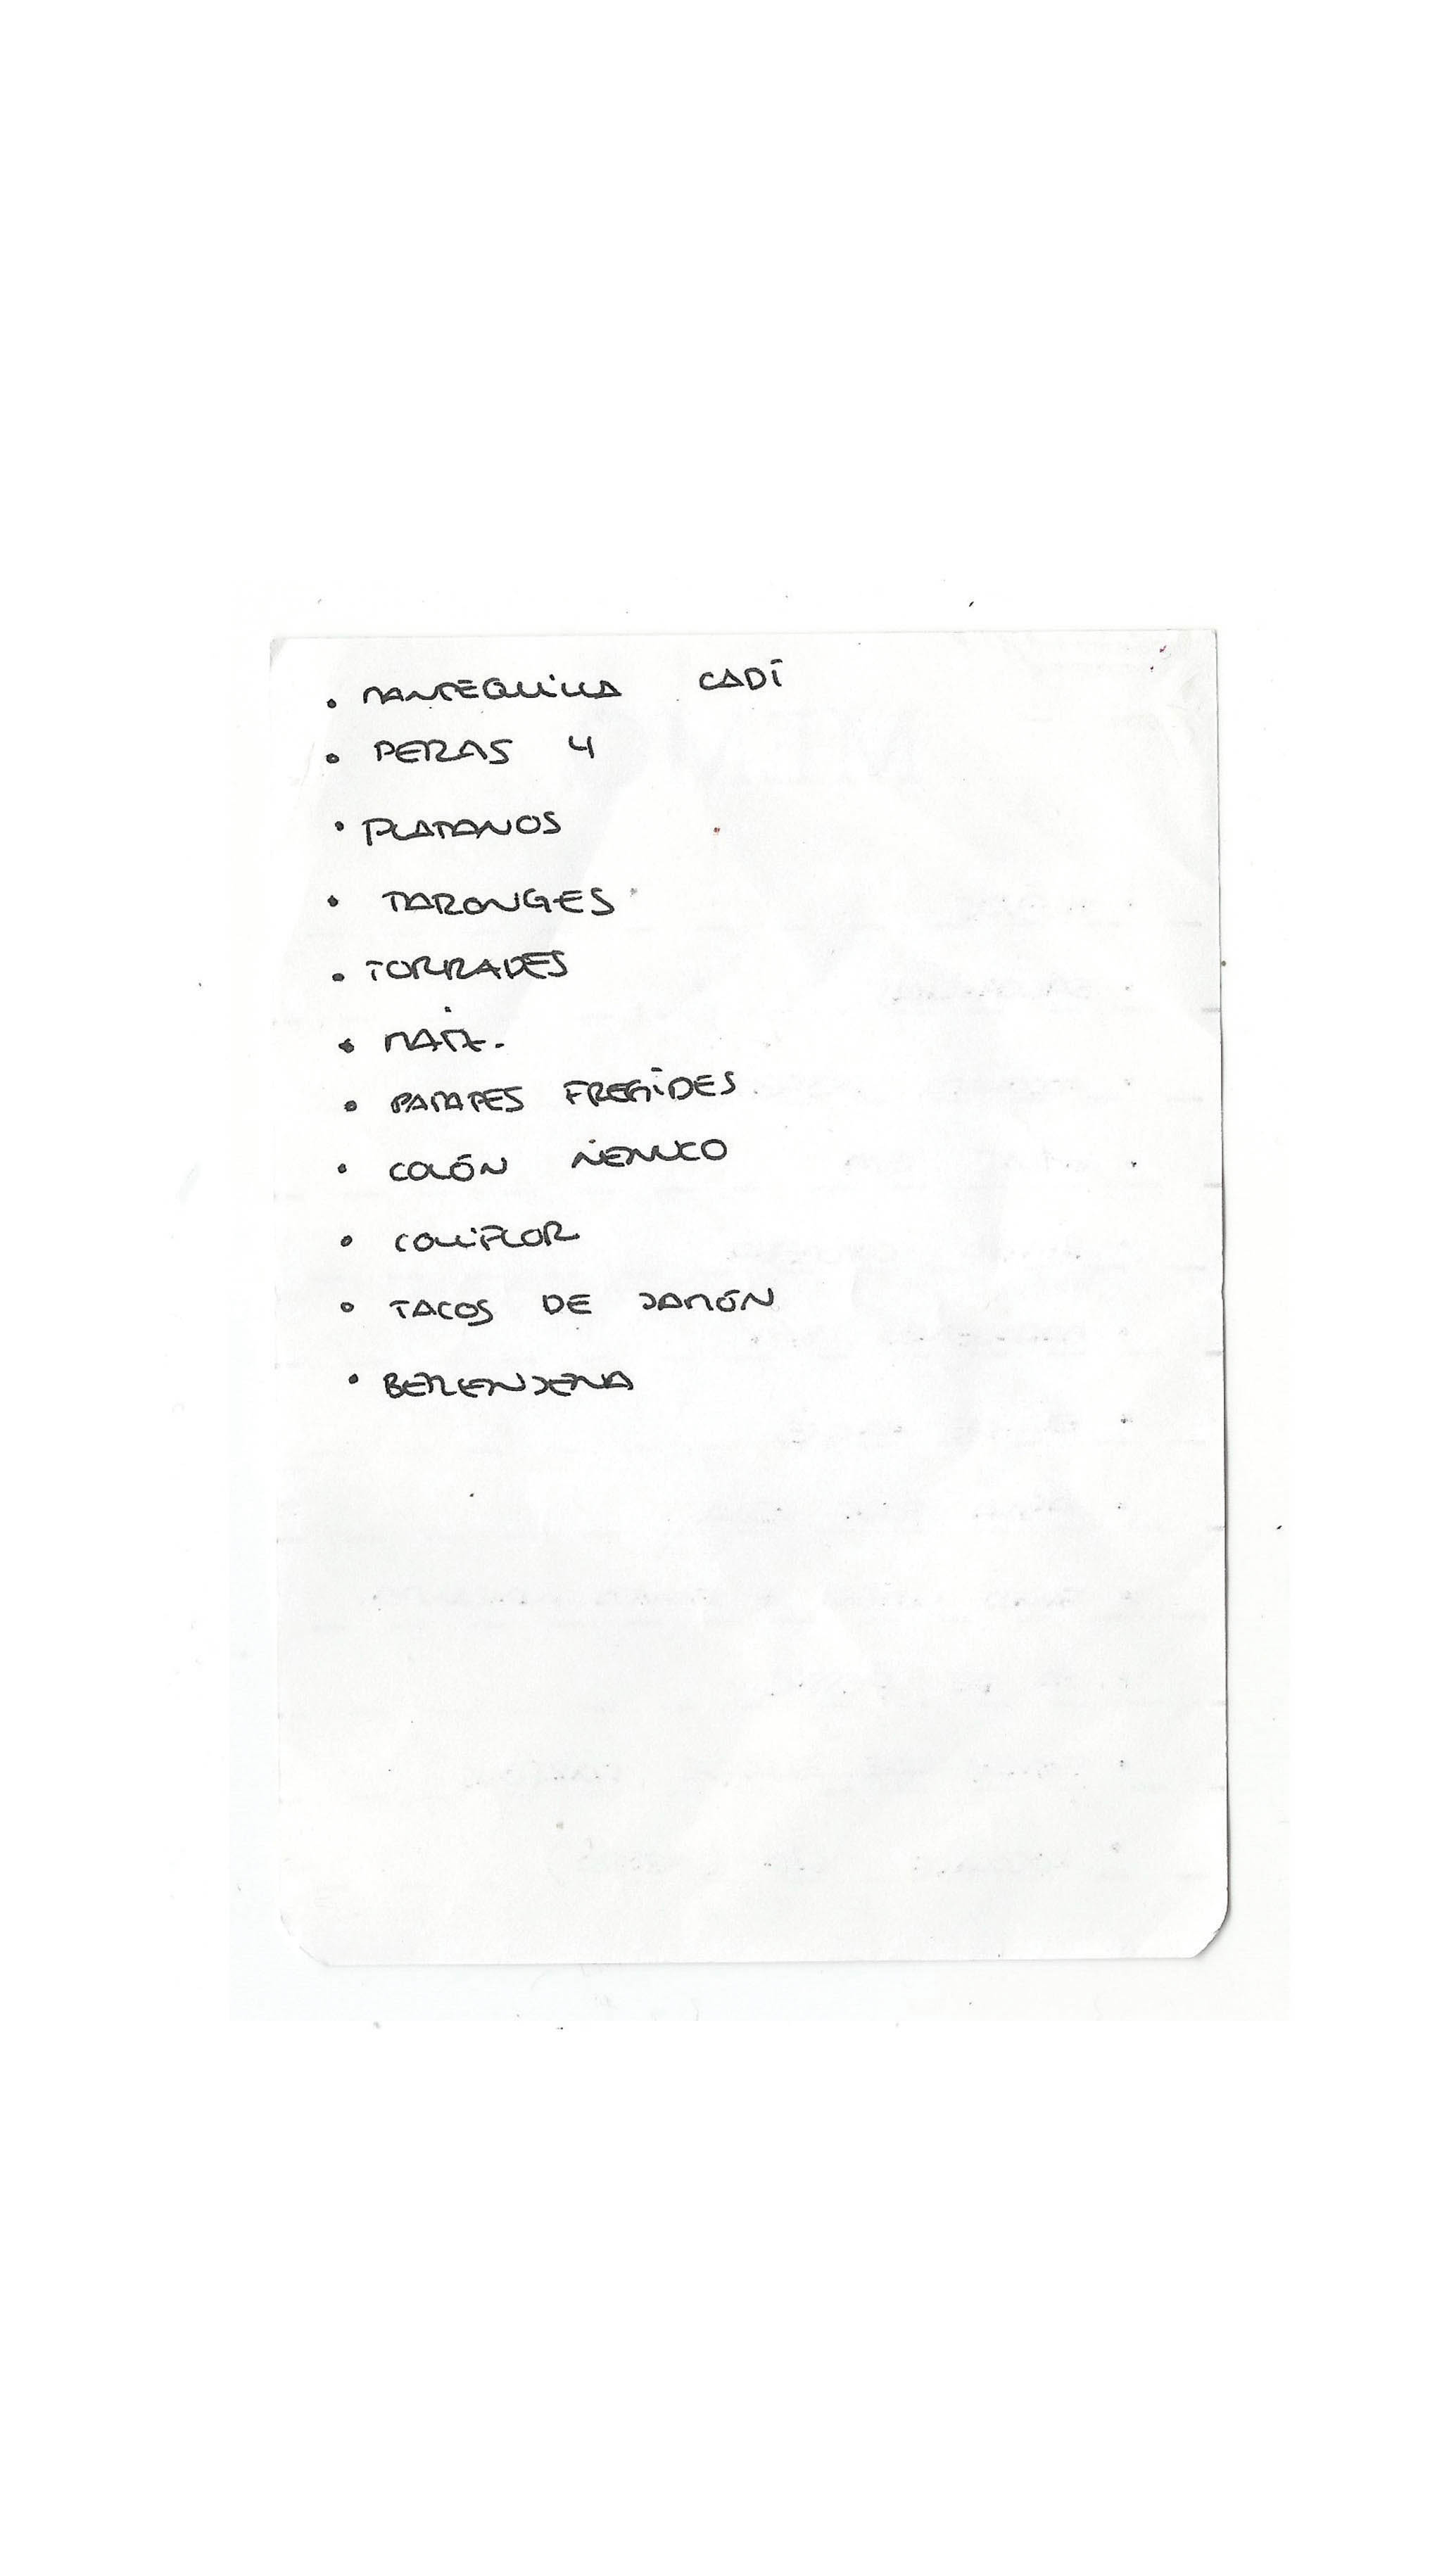 • MANTEQUILLA CADÍ
• PERAS 4
• PLATANOS
• TARONGES
• TORRADES
• MAÍZ.
• PATATES FREGIDES
• COLÓN NENUCO
• COLIFLOR
• TACOS DE JAMÓN
• BERENJENA